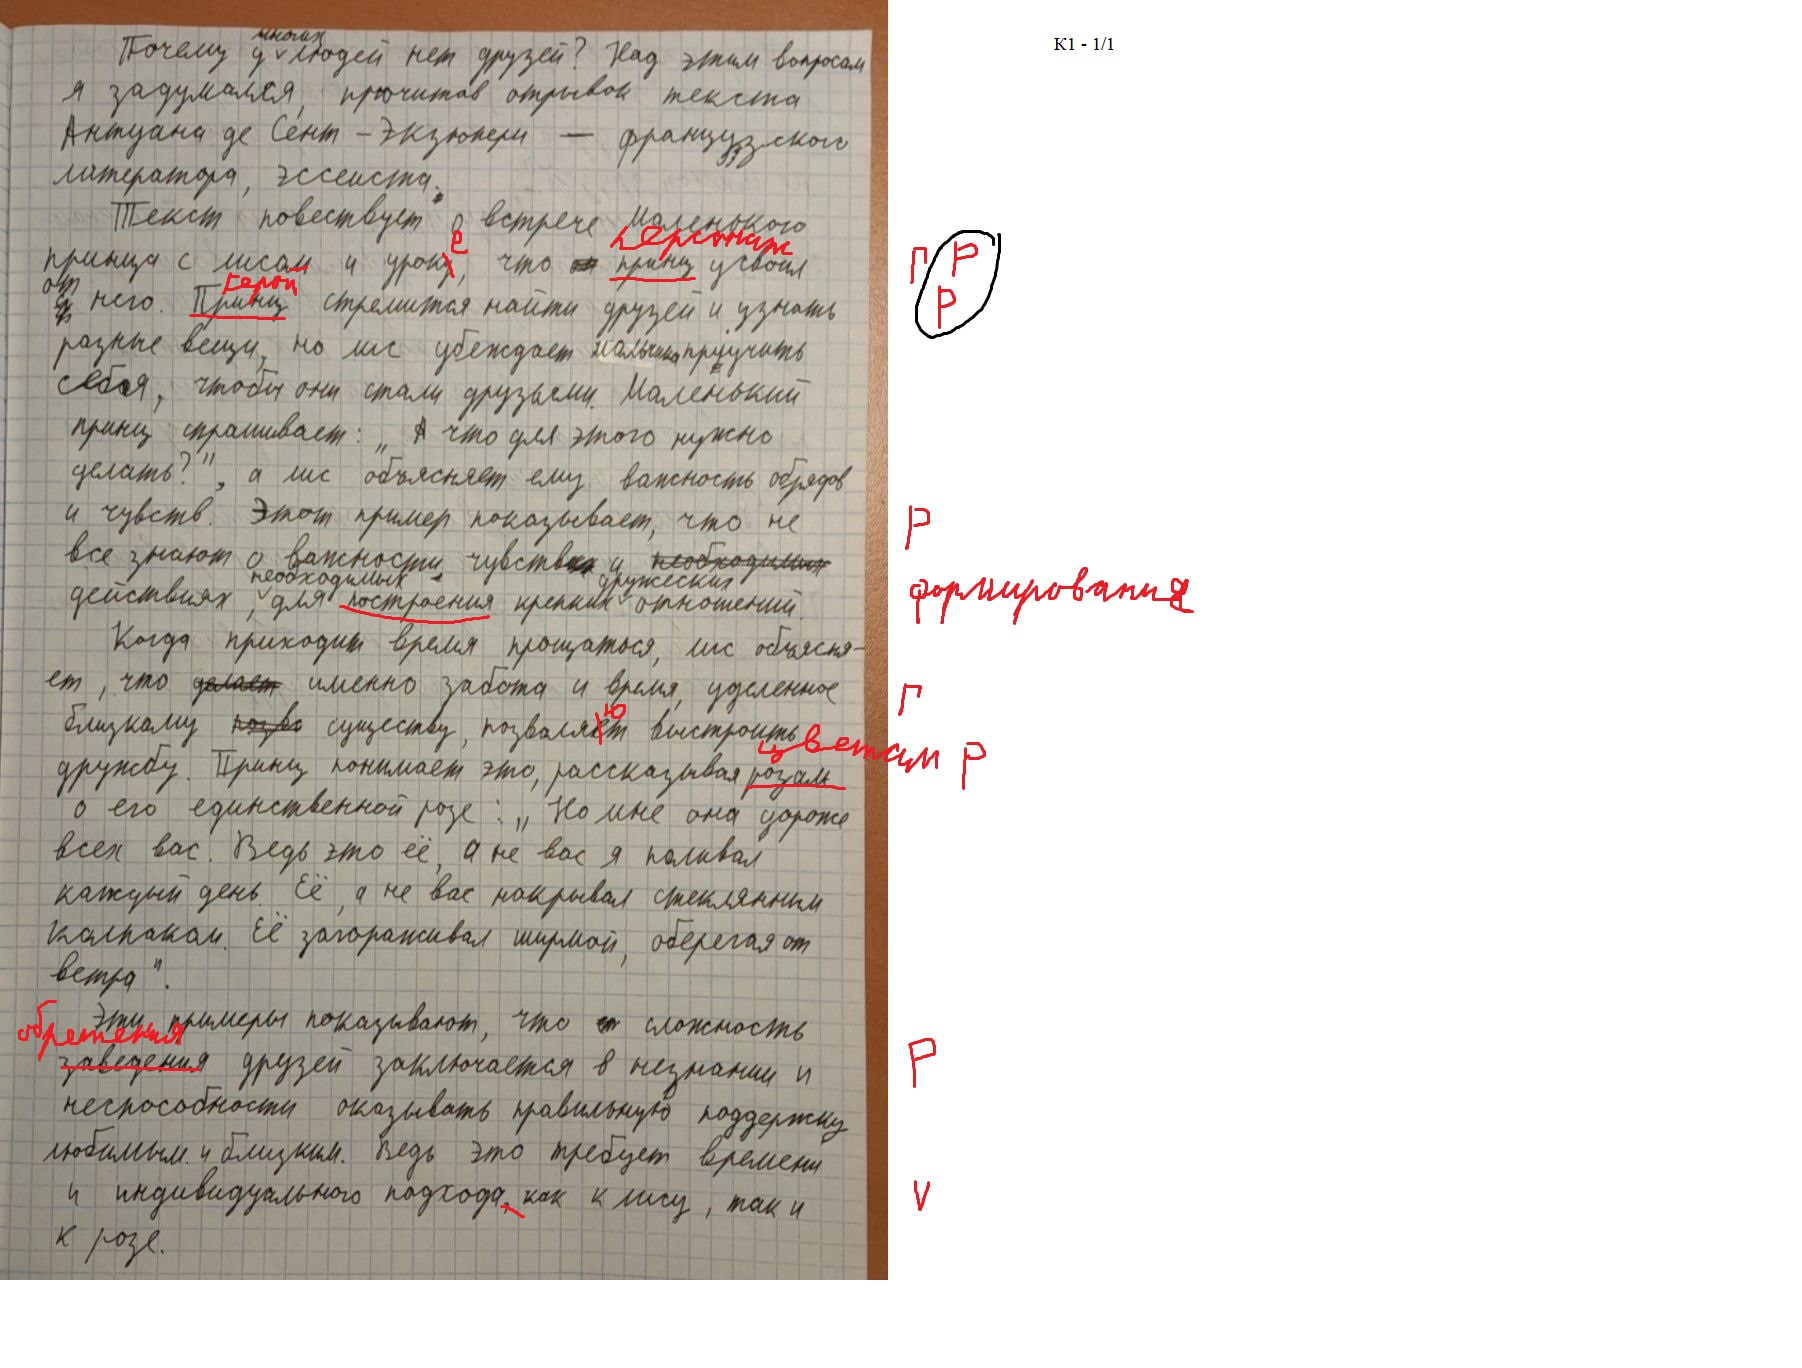 К1 - 1/1
многих
Почему у ᵛ людей нет друзей? Над этим вопросом
я задумался, прочитав отрывок текста
Антуана де Сент-Экзюпери — французского
литератора, эссеиста.
Текст повествует о встрече Маленького
персонаж
принца с лисом и уроку, что принц усвоил
е
Г Р
герой
от него. Принц стремится найти друзей и узнать
Р
разные вещи, но лис убеждает мальчика приучить
себя, чтобы они стали друзьями. Маленький
принц спрашивает: „А что для этого нужно
делать?", а лис объясняет ему важность обрядов
и чувств. Этот пример показывает, что не
Р
все знают о важности чувств и необходимых
необходимых дружеских
действиях, для построения крепких ᵛ отношений.
формирования
Когда приходит время прощаться, лис объясня-
ет, что делает именно забота и время, уделенное
Г
близкому существу, позваляет выстроить
ю
цветам Р
дружбу. Принц понимает это, рассказывая розам
о его единственной розе: „Но мне она дороже
всех вас. Ведь это её, а не вас я поливал
каждый день. Её, а не вас накрывал стеклянным
колпаком. Её загораживал ширмой, оберегая от
ветра".
Эти примеры показывают, что сложность
обретения
заведения друзей заключается в незнании и
Р
неспособности оказывать правильную поддержку
любимым и близким. Ведь это требует времени
и индивидуального подхода, как к лису, так и
V
к розе.